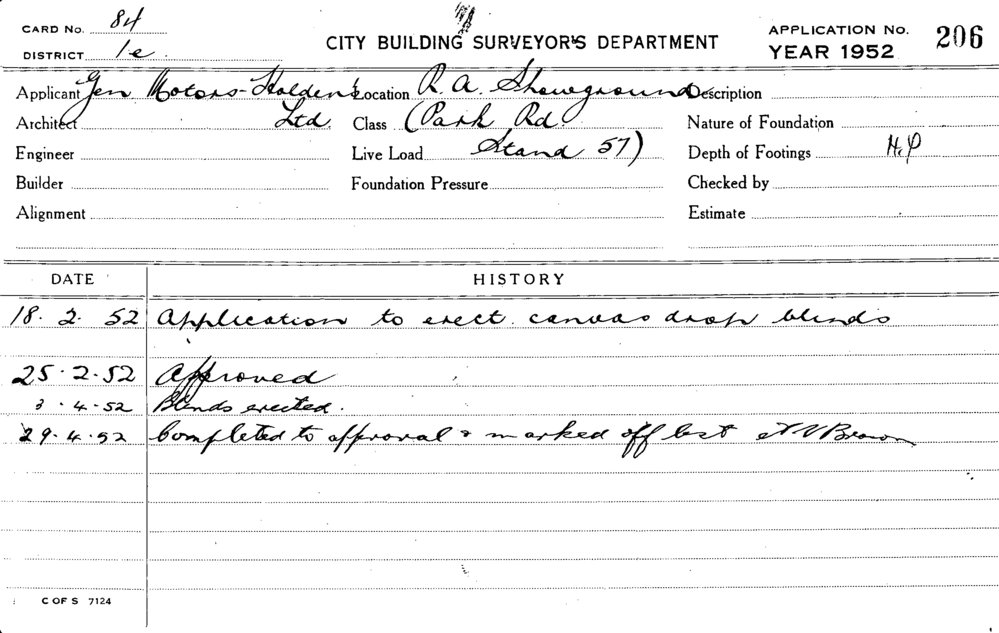 CARD No. 84
DISTRICT 1e.
CITY BUILDING SURVEYOR'S DEPARTMENT
APPLICATION No. 206
YEAR 1952
Applicant Gen Motors-Holden's Location R. A. Showground Description
Architect Ltd. Class (Park Rd. Nature of Foundation
Engineer Live Load Stand 57) Depth of Footings H.P
Builder Foundation Pressure Checked by
Alignment Estimate
DATE HISTORY
18. 2. 52 Application to erect canvas drop blinds
25.2.52 Approved
3.4.52 Blinds erected.
29.4.52 Completed to approval & marked off list Brown
C OF S 7124